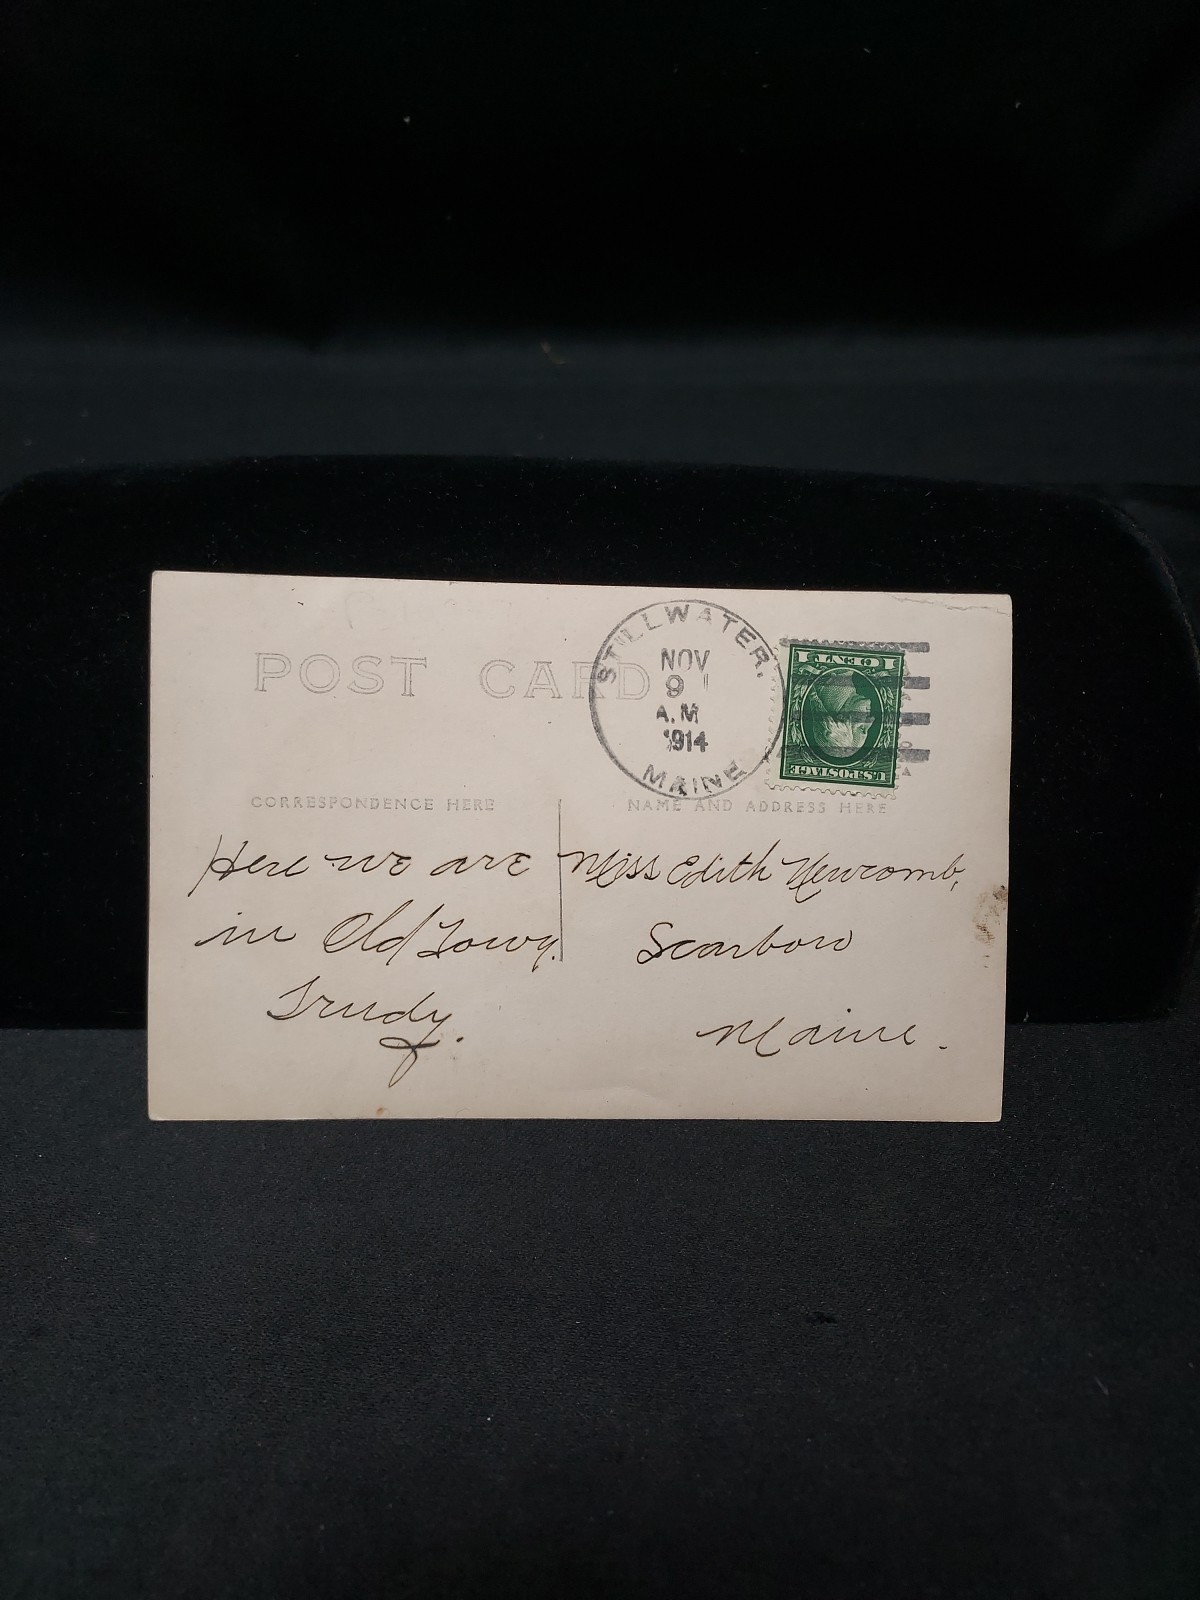 POST CARD
STILLWATER,
NOV
9
A.M
1914
MAINE
1 CENT 1
U.S. POSTAGE
CORRESPONDENCE HERE
NAME AND ADDRESS HERE
Here we are
in Old Town.
Trudy.
Miss Edith Newcomb,
Scarboro
Maine.